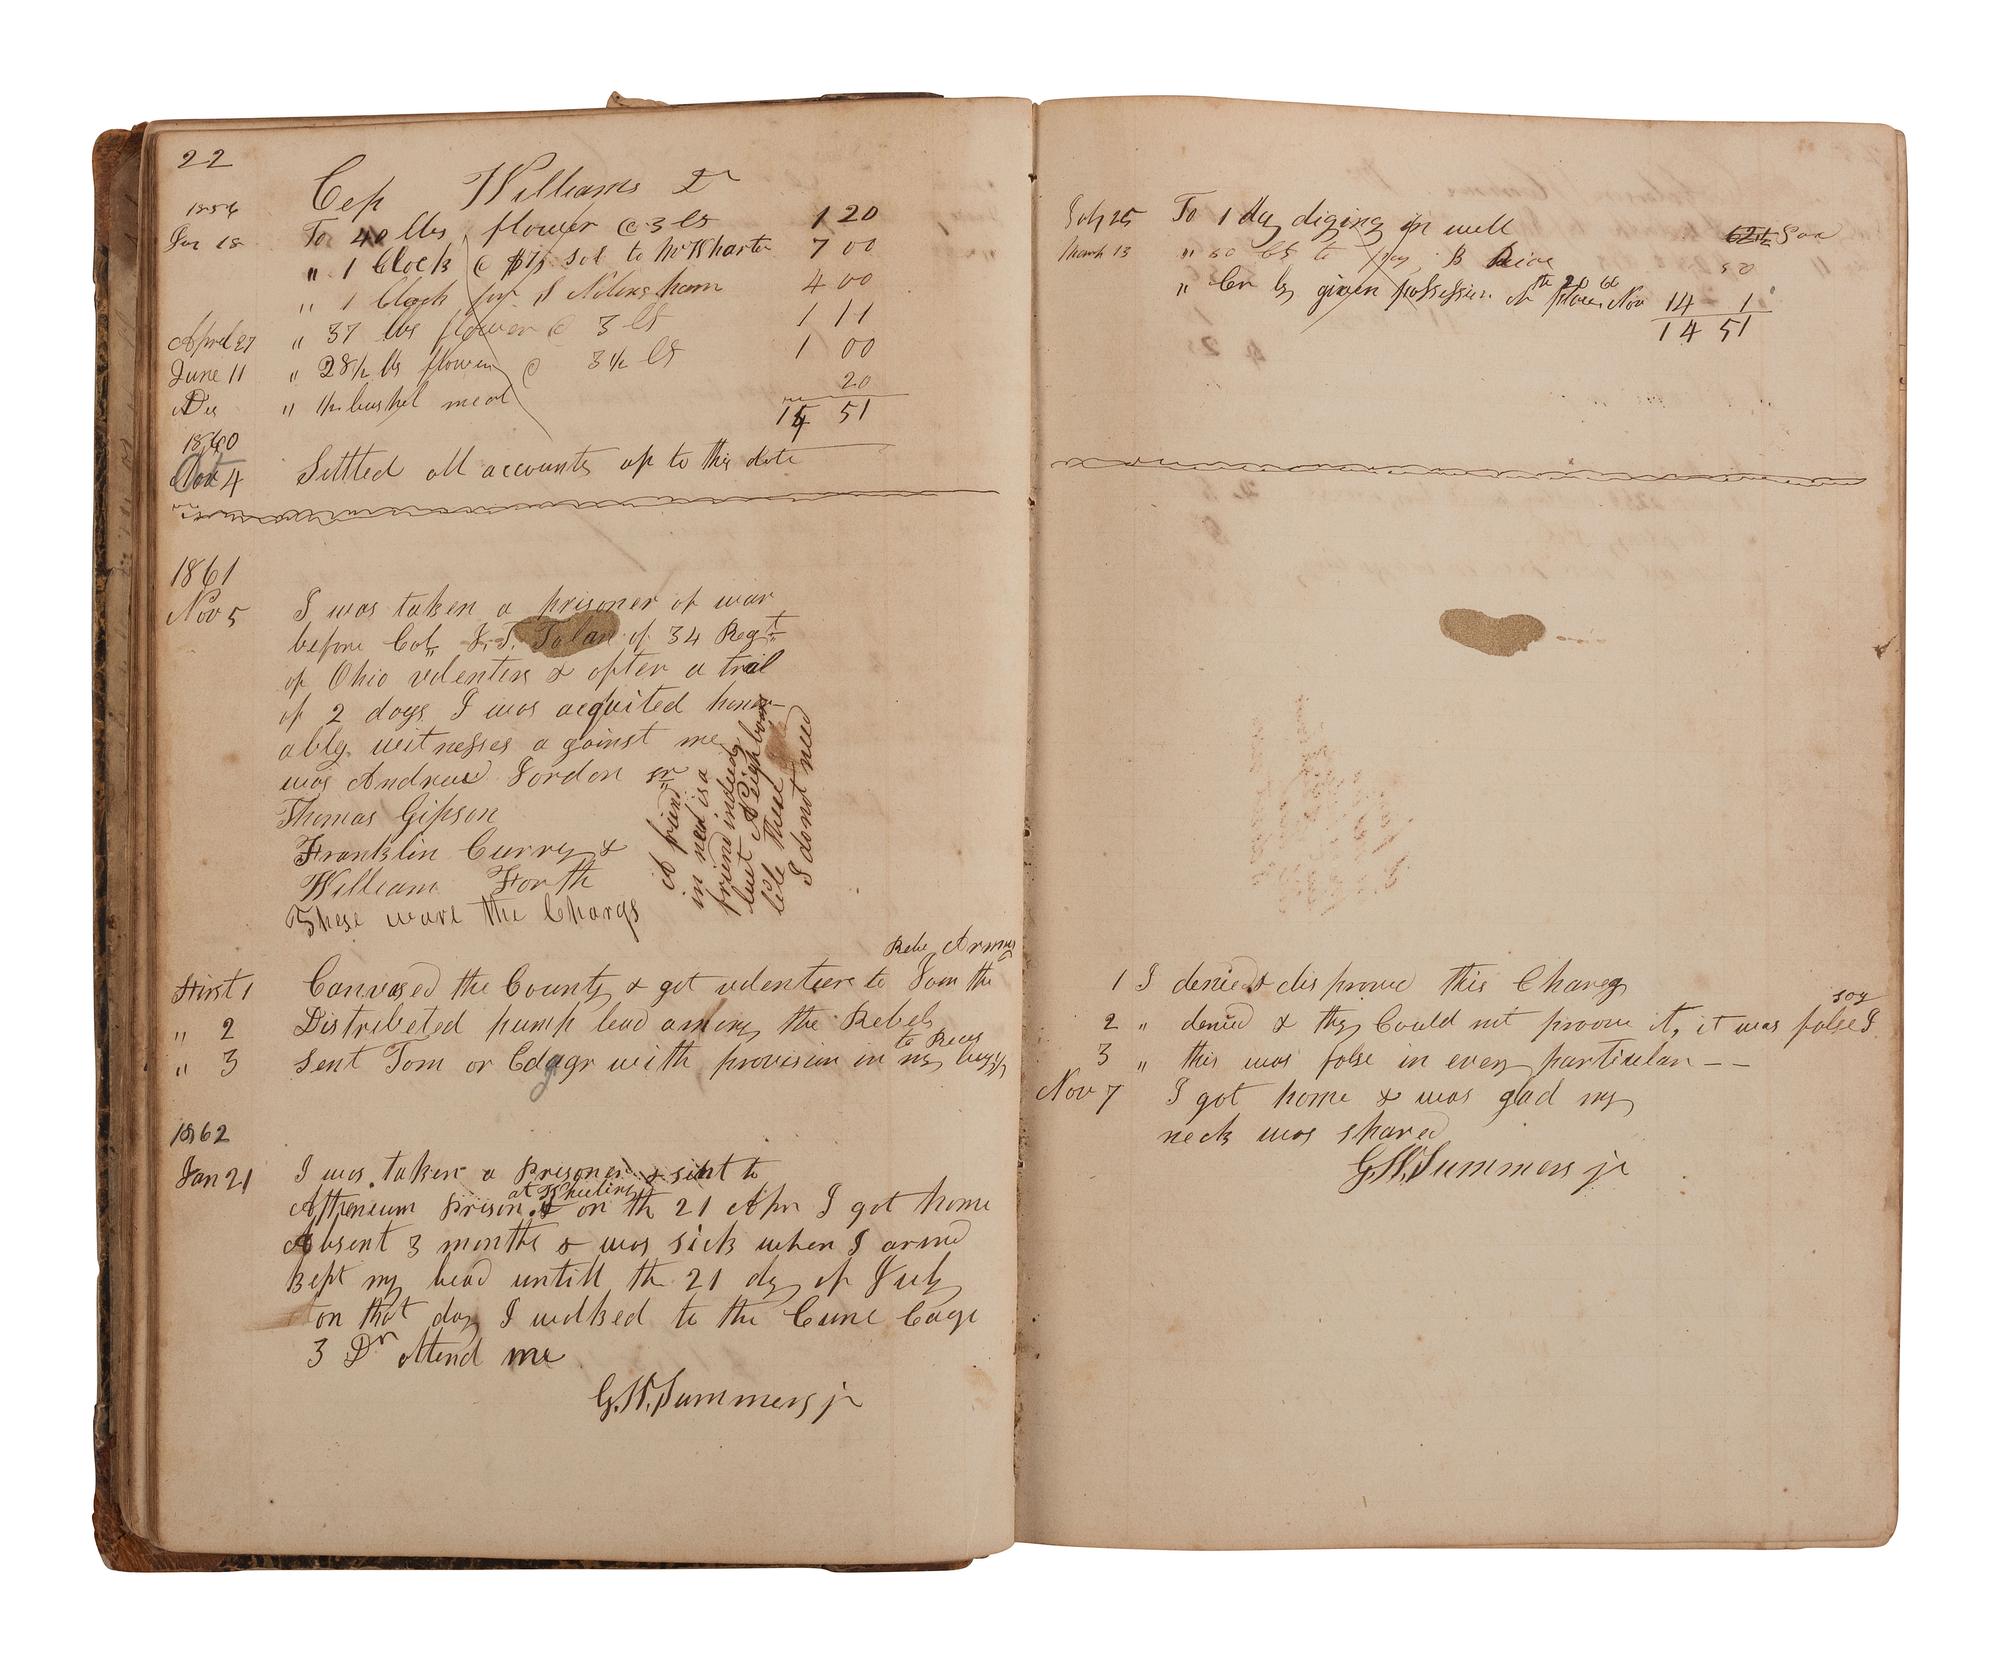 22
Cep Williams Dr
1856
Jan 18 To 40 lbs flower @ 3 cts 1 20
" 1 Clock @ $7 Sol to McKharter 7 00
" 1 Clock for S 4 00
April 27 " 37 lbs flower @ 3 cts 1 11
June 11 " 28 1/2 lbs flower @ 3 1/2 cts 1 00
Des " 1/2 bushel meal 20
14 51
1860
Oct 4 Settled all accounts up to this date
1861
Nov 5 I was taken a prisoner of war
before Col, J. T. Tolan of 34 Regt
of Ohio volenters & after a trial
of 2 days I was acquited honer-
ably witnesses a gainst me
was Andrew Jordon sr
Thomas Gipson
Franklin Curry &
William Forth
These ware the Chargs
A friend
in need is a
friend indeed
but Neighbors
like these
I do not need
Rebe Army
First 1 Canvased the County & got volenteers to Join the
" 2 Distributed pump lead among the Rebels
to Reves
" 3 Sent Tom or Edgar with provision in my bugy
1862
Jan 21 I was taken a prisoner & sent to
at Wheeling
Atheneum prison & on the 21 Apr I got home
Absent 3 months & was sick when I arived
kept my bead untill the 21 dy of July
on that day I walked to the Cune Cage
3 Dr attend me
G. W. Summers jr
July 25 To 1 day diging in well
62 1/2
March 13 " 50 cts to pay B 50
" Cr by given possession of place Nov the 20 60 14 1
14 51
1 I denied & disproved this Charg
soy
2 " denied & they Could not proove it, it was false I
3 " this was false in every particular --
Nov 7 I got home & was glad my
neck was spared
G. W. Summers jr